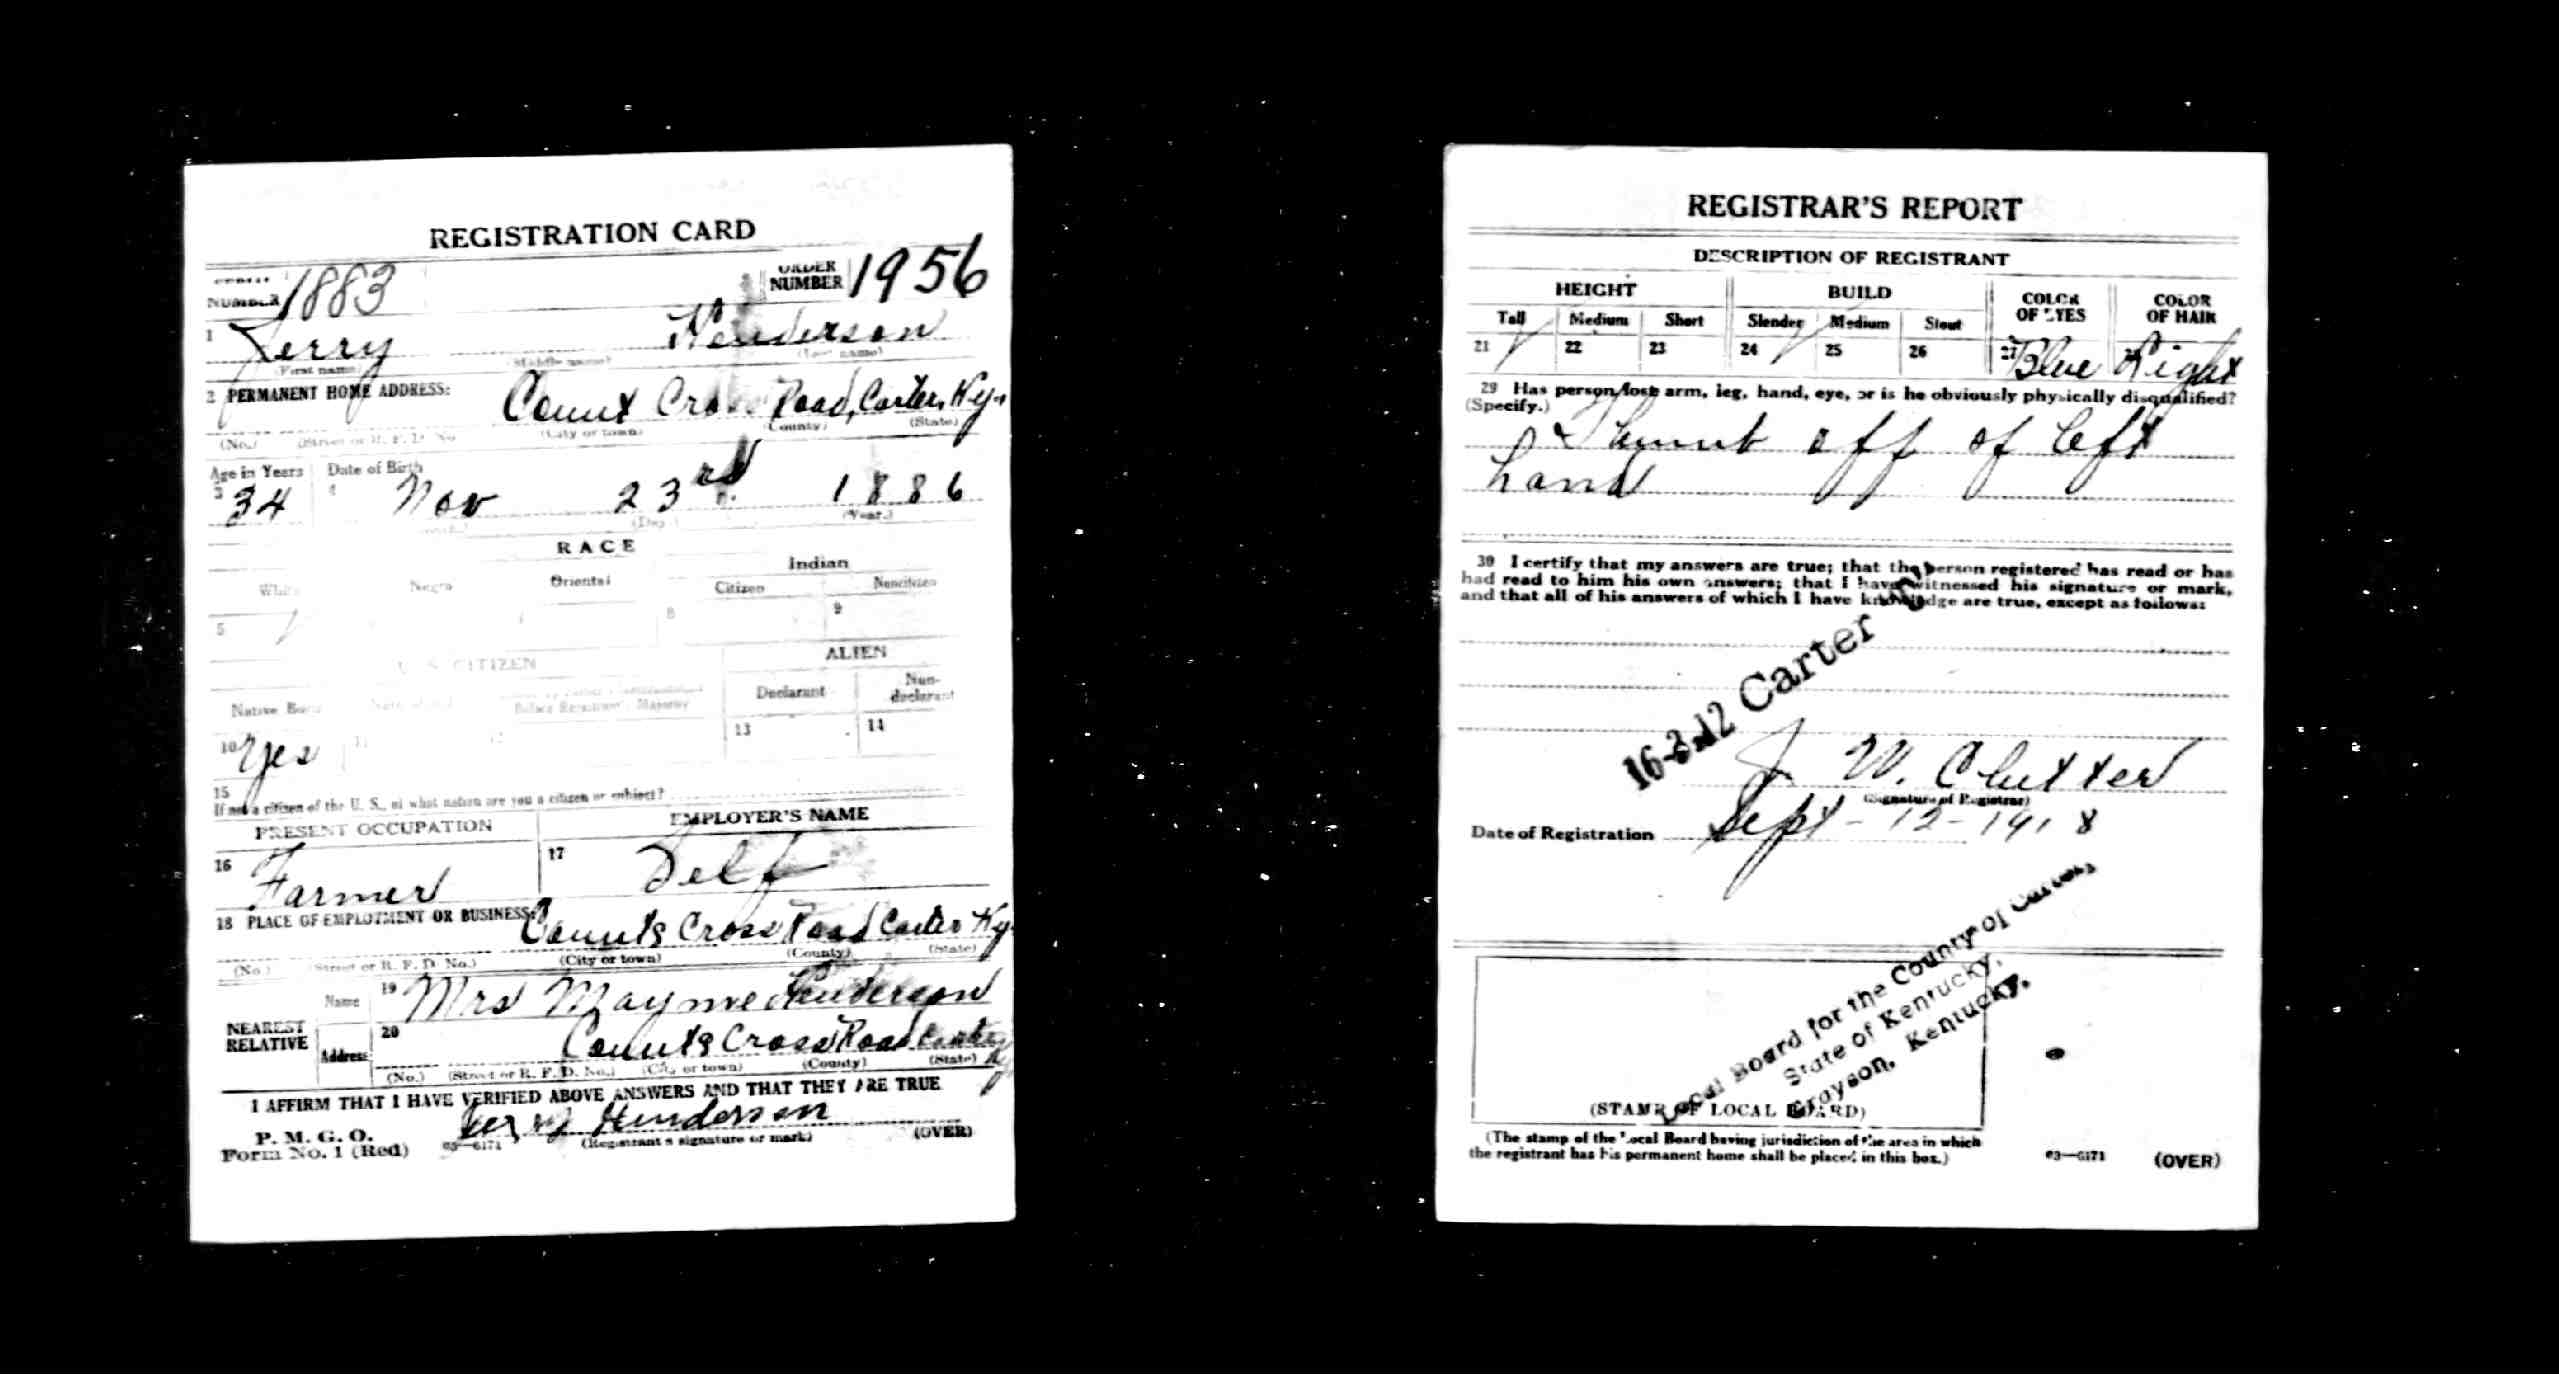 REGISTRATION CARD
NUMBER 1883 ORDER NUMBER 1956
1 Jerry Henderson
(First name) (Middle name) (Last name)
2 PERMANENT HOME ADDRESS: Count Cross Road, Carter, Ky.
(No.) (Street or R. F. D. No. (City or town) (County) (State)
Age in Years Date of Birth
3 34 4 Nov 23rd 1886
(Day.) (Year.)
RACE
White Negro Oriental Indian
Citizen Noncitizen
5 / 8 9
U. S. CITIZEN ALIEN
Native Born Declarant Non-declarant
10 Yes 11 12 13 14
15
If not a citizen of the U. S., of what nation are you a citizen or subject?
PRESENT OCCUPATION EMPLOYER'S NAME
16 Farmer 17 Self
18 PLACE OF EMPLOYMENT OR BUSINESS: Counts Cross Road Carter Ky.
(No.) (Street or R. F. D. No.) (City or town) (County) (State)
NEAREST RELATIVE
Name 19 Mrs Mayme Henderson
Address 20 Counts Cross Road Carter Ky
(No.) (Street or R. F. D. No.) (City or town) (County) (State)
I AFFIRM THAT I HAVE VERIFIED ABOVE ANSWERS AND THAT THEY ARE TRUE
P. M. G. O.
Form No. 1 (Red) 03—6171 Jerry Henderson
(Registrant's signature or mark) (OVER)
REGISTRAR'S REPORT
DESCRIPTION OF REGISTRANT
HEIGHT BUILD COLOR OF EYES COLOR OF HAIR
Tall Medium Short Slender Medium Stout
21 / 22 23 24 / 25 26 27 Blue Light
29 Has person lost arm, leg, hand, eye, or is he obviously physically disqualified?
(Specify.)
Thumb off of left
hand
30 I certify that my answers are true; that the person registered has read or has
had read to him his own answers; that I have witnessed his signature or mark,
and that all of his answers of which I have knowledge are true, except as follows:
16-3-12 Carter
J. W. Clutter
(Signature of Registrar)
Date of Registration Sept-12-1918
Local Board for the County of Carter,
State of Kentucky,
Grayson, Kentucky.
(STAMP OF LOCAL BOARD)
(The stamp of the Local Board having jurisdiction of the area in which
the registrant has his permanent home shall be placed in this box.)
03—6171 (OVER)